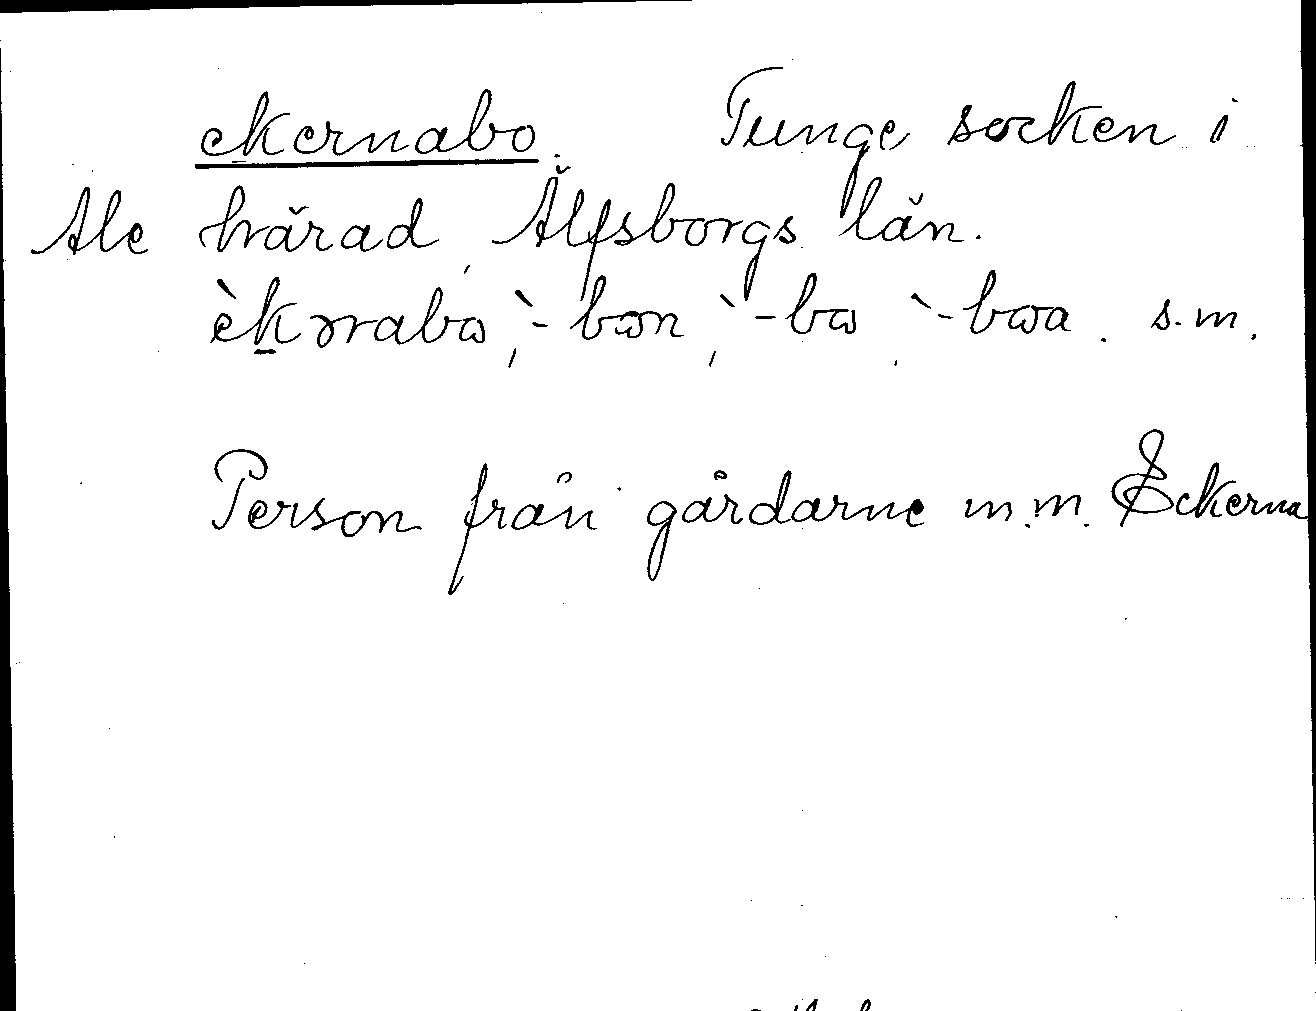 ekernabo. Tunge socken i
Ale härad, Älfsborgs län.
èk̲ərnabω, `-bωn, `-bω, `-bωa. s.m.
Person från gårdarne m.m. Eckerna